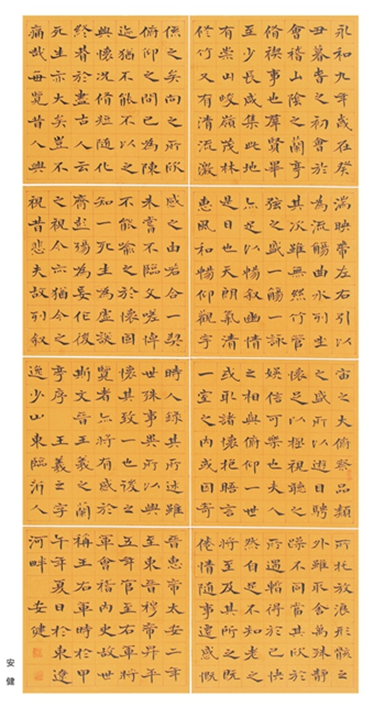 永和九年歲在癸
丑暮春之初會於
會稽山陰之蘭亭
脩禊事也羣賢畢
至少長咸集此地
有崇山峻嶺茂林
脩竹又有清流激
湍映帶左右引以
為流觴曲水列坐
其次雖無絲竹管
弦之盛一觴一詠
亦足以暢叙幽情
是日也天朗氣清
惠風和暢仰觀宇
宙之大俯察品類
之盛所以遊目騁
懷足以極視聽之
娛信可樂也夫人
之相與俯仰一世
或取諸懷抱晤言
一室之內或因寄
所托放浪形骸之
外雖取舍萬殊靜
躁不同當其欣於
所遇暫得於己快
然自足不知老之
將至及其所之既
倦情隨事遷感慨
係之矣向之所欣
俯仰之間已為陳
迹猶不能不以之
興懷況脩短隨化
終期於盡古人云
死生亦大矣豈不
痛哉每覽昔人興
感之由若合一契
未嘗不臨文嗟悼
不能喻之於懷固
知一死生為虛誕
齊彭殤為妄作後
之視今亦猶今之
視昔悲夫故列叙
時人錄其所述雖
世殊事異所以興
懷其致一也後之
覽者亦將有感於
斯文晉王羲之蘭
亭序 王羲之字
逸少山東臨沂人
晉惠帝太安二年
至東晉穆帝昇平
五年官至右將
軍會稽內史故世
稱王右軍時於甲
午年夏日於東遼
河畔 安健
安健